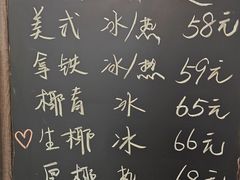 美式 冰/热 58元
拿铁 冰/热 59元
椰青 冰 65元
♡生椰 冰 66元
厚椰 热 68元